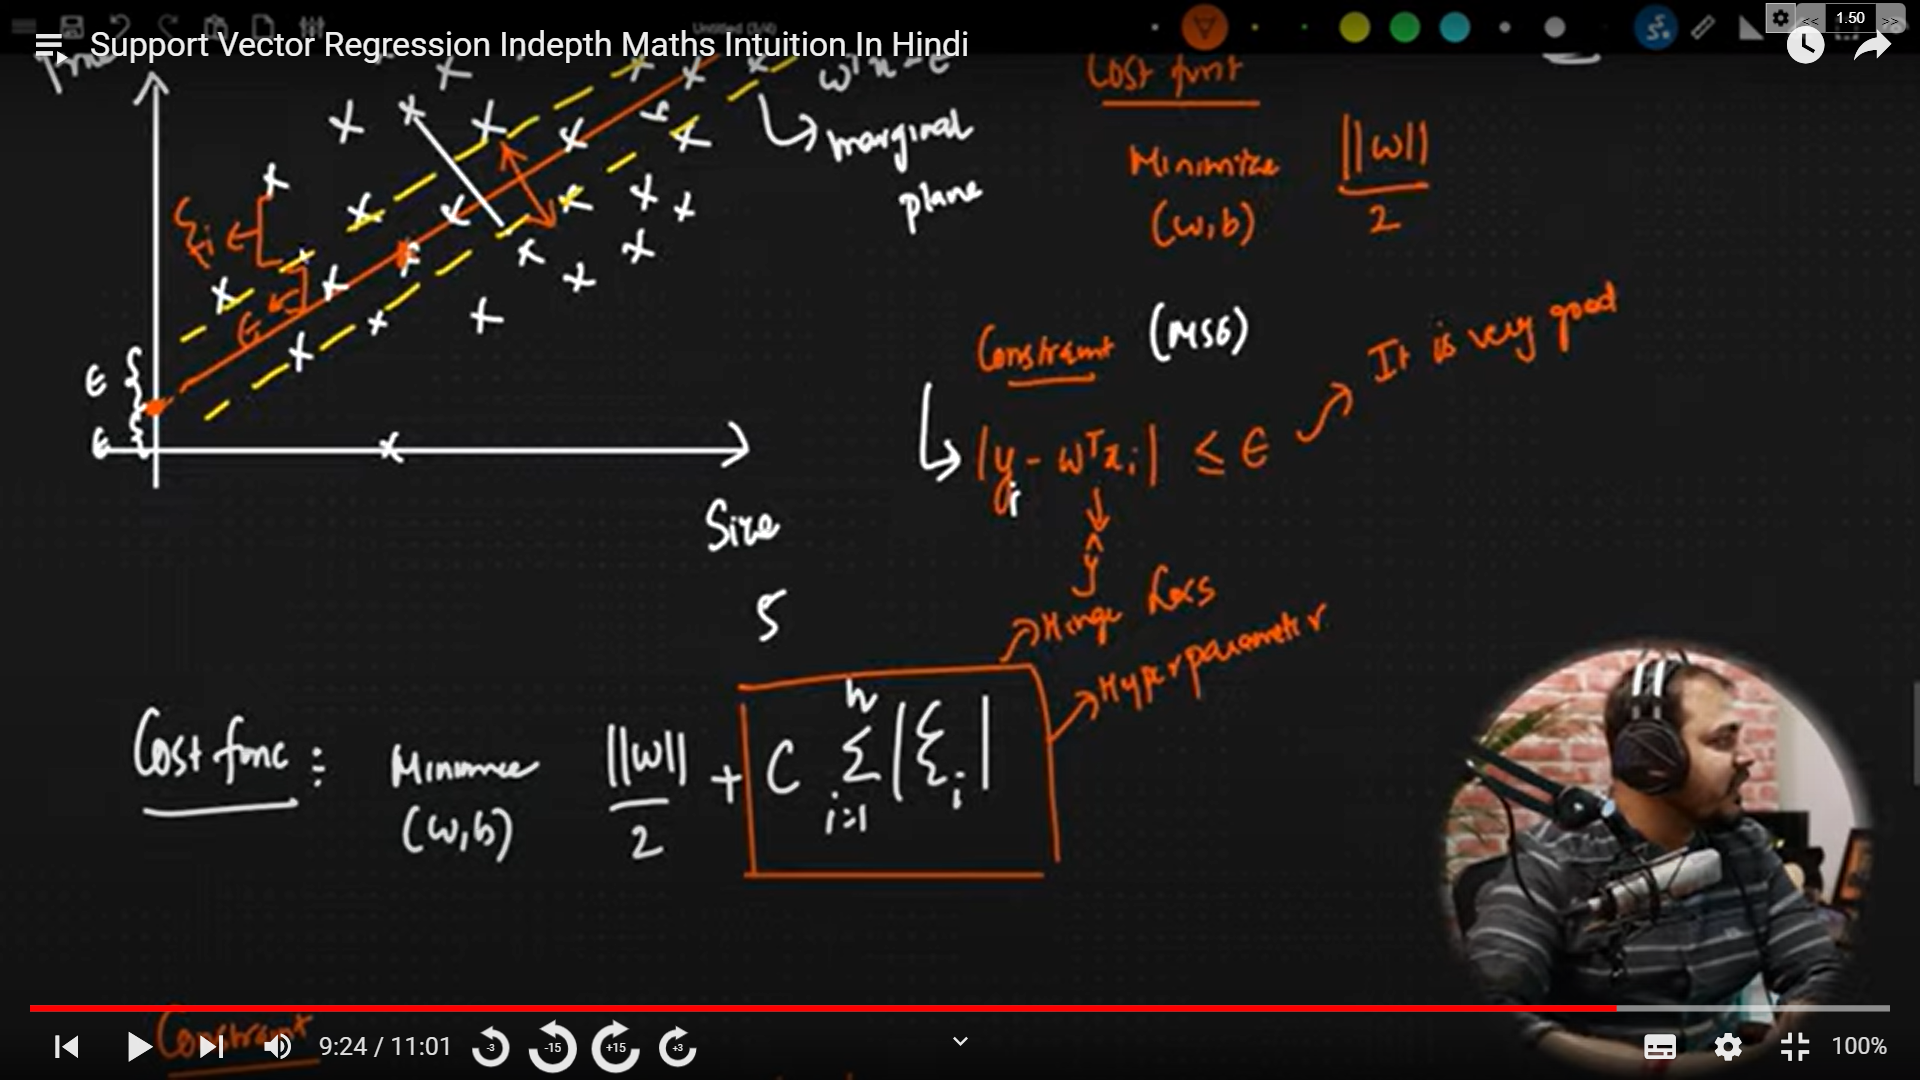 Support Vector Regression Indepth Maths Intuition In Hindi
<< 1.50 >>
wᵀx - ε
marginal
plane
Cost funt
Minimize ||w||
(w,b) 2
ξi
ε
ε
ε
Size
5
Constraint (MSG)
It is very good
|yi - wᵀxi| ≤ ε
ŷ
Hinge Loss
Hyperparameter
Cost func : Minimize ||w|| + C n Σ i=1 |ξi|
(w,b) 2
Constraint
9:24 / 11:01
-3
-15
+15
+3
100%